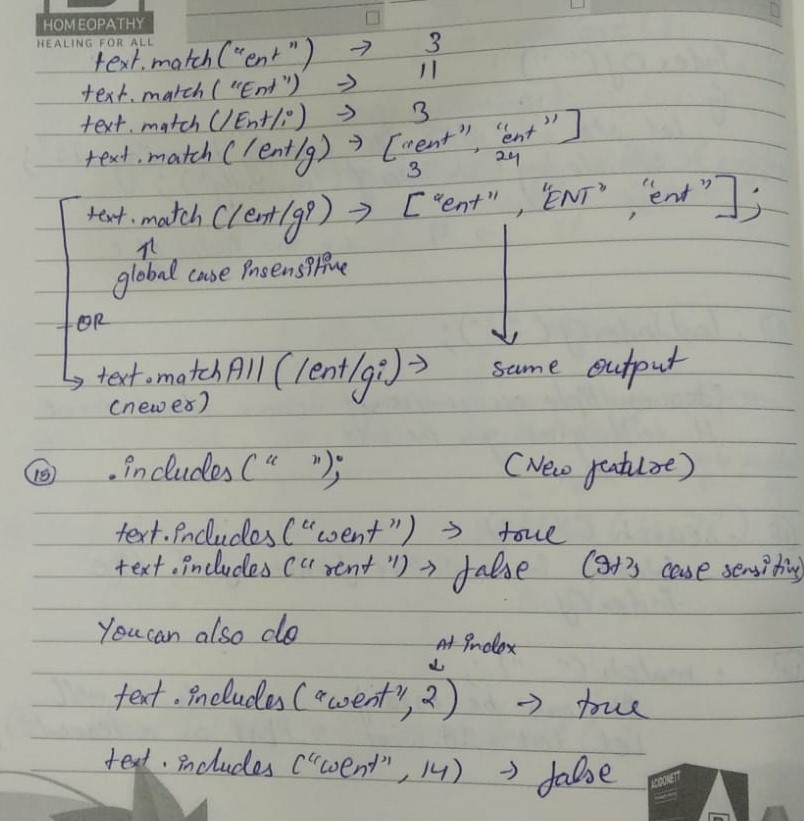 HOMEOPATHY
HEALING FOR ALL
text.match("ent") → 3
text.match("Ent") → 11
text.match(/Ent/i) → 3
text.match(/ent/g) → ["ent", "ent"]
3 24
text.match(/ent/gi) → ["ent", "ENT", "ent"];
global case insensitive
OR
text.matchAll(/ent/gi) → same output
(newer)
15 .includes(" "); (New feature)
text.includes("went") → true
text.includes("rent") → false (It's case sensitive)
You can also do
At index
text.includes("went", 2) → true
text.includes("went", 14) → false
ACIDONETT